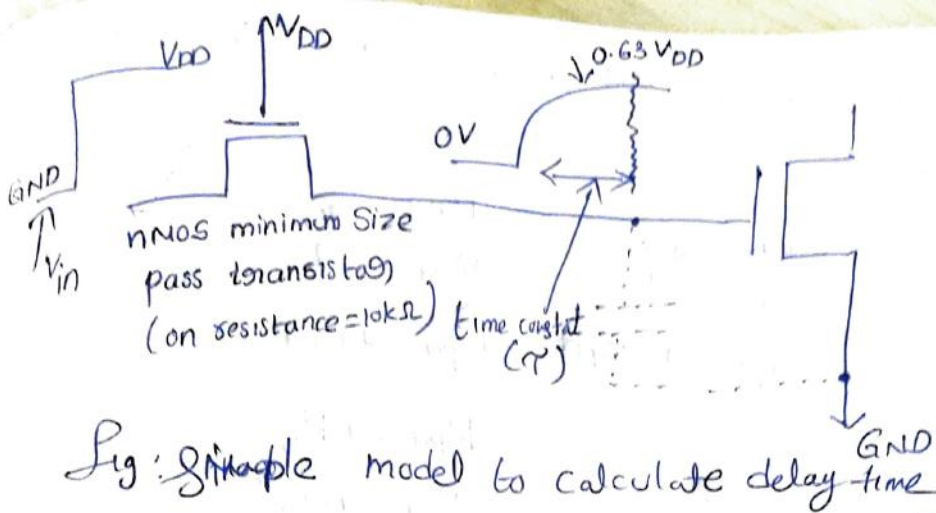 VDD
VDD
0.63 VDD
0V
GND
Vin
nMOS minimum Size
pass transistor
(on resistance=10kΩ)
time constat
(τ)
GND
Fig: Simple model to calculate delay time